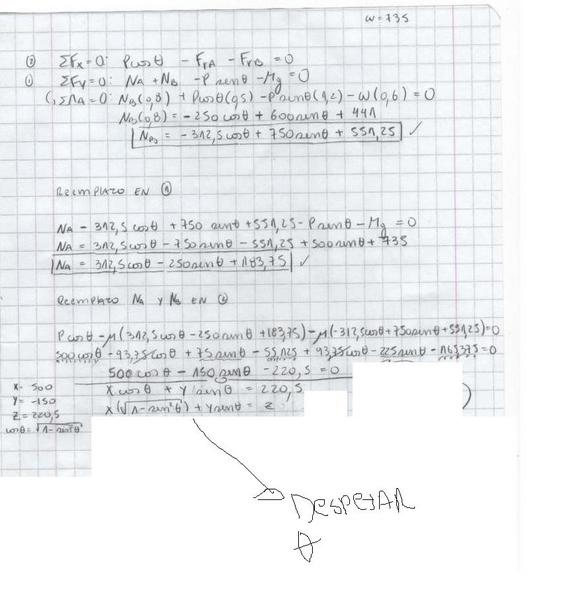 W=735
② ΣFx=0: Pcosθ - FrA - FrB = 0
① ΣFy=0: NA + NB - P senθ - Mg = 0
ΣMA=0: NB(0,8) + Pcosθ(0,5) - Psenθ(1,2) - W(0,6) = 0
NB(0,8) = -250 cosθ + 600 senθ + 441
NB = -312,5 cosθ + 750 senθ + 551,25 ✓
REEMPLAZO EN ①
NA - 312,5 cosθ + 750 senθ + 551,25 - P senθ - Mg = 0
NA = 312,5 cosθ - 750 senθ - 551,25 + 500 senθ + 735
NA = 312,5 cosθ - 250 senθ + 183,75 ✓
Reemplazo NA y NB EN ②
Pcosθ - μ(312,5cosθ - 250senθ + 183,75) - μ(-312,5cosθ + 750senθ + 551,25) = 0
500cosθ - 93,75cosθ + 75senθ - 55,125 + 93,75cosθ - 225senθ - 165,375 = 0
500 cosθ - 150 senθ - 220,5 = 0
X cosθ + Y senθ = 220,5
X(√1-sen²θ) + Ysenθ = Z
X= 500
Y= -150
Z= 220,5
cosθ = √1-sen²θ
)
DESPEJAR
θ